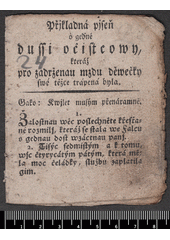 Přjkladná pjseň
o gedné
dussi očistcowy,
kteráž
pro zadrženau mzdu děwečky
swé těžce trápena byla.
24
Gako: Kwjlet musým přenáramně.
1.
Žalostnau wěc poslechněte křesťa-
né rozmilj, kteráž se stala we
o gednau dost wzácnau panj.
2. Tisýc sedmistým a k tomu,
wsse čtyrycátým pátým, která mě-
la moc čeládky, služby zaplatila
gim.